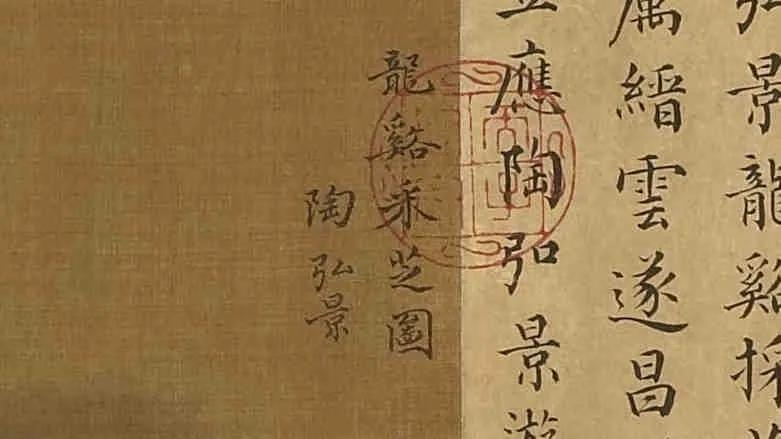 弘景龍谿採
厲縉雲遂昌
應陶弘景遊
龍谿采芝圖
陶弘景